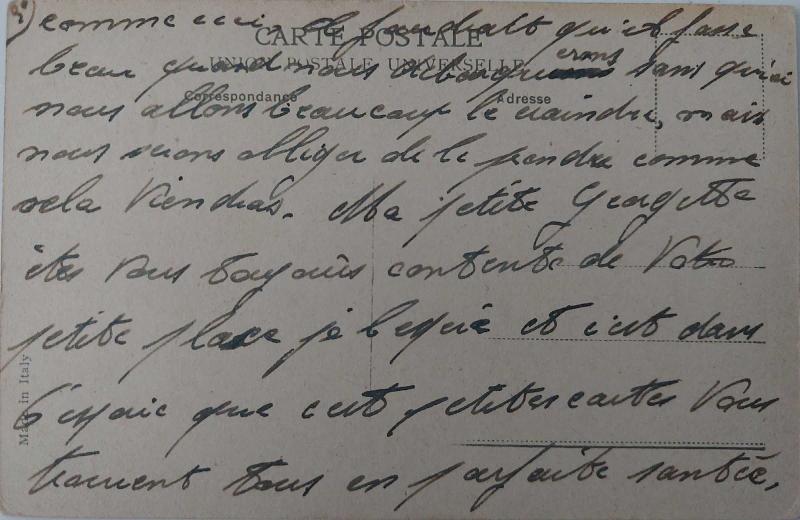 2)
comme ceci, il faudrait qu'il fasse
CARTE POSTALE
beau quand nous debarquerons sans quoi
UNION POSTALE UNIVERSELLE
Correspondance
Adresse
nous allons beaucoup le craindre, mais
nous serons obliger de le prendre comme
cela Viendras. Ma petite Georgette
êtes Vous toujours contente de Votre
petite place je l'espère et c'est dans
l'éspoir que cest petites cartes Vous
trouvent tous en parfaite santée,
Made in Italy